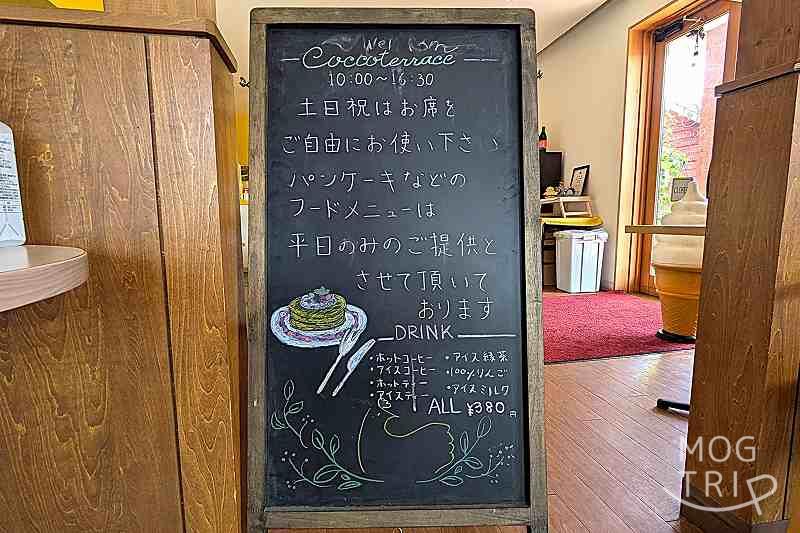 Welcom
Coccoterrace
10:00～16:30
土日祝はお席を
ご自由にお使い下さい
パンケーキなどの
フードメニューは
平日のみのご提供と
させて頂いて
おります
DRINK
・ホットコーヒー ・アイス緑茶
・アイスコーヒー ・100%りんご
・ホットティー ・アイスミルク
・アイスティー
ALL ¥380円
MOG
TRIP